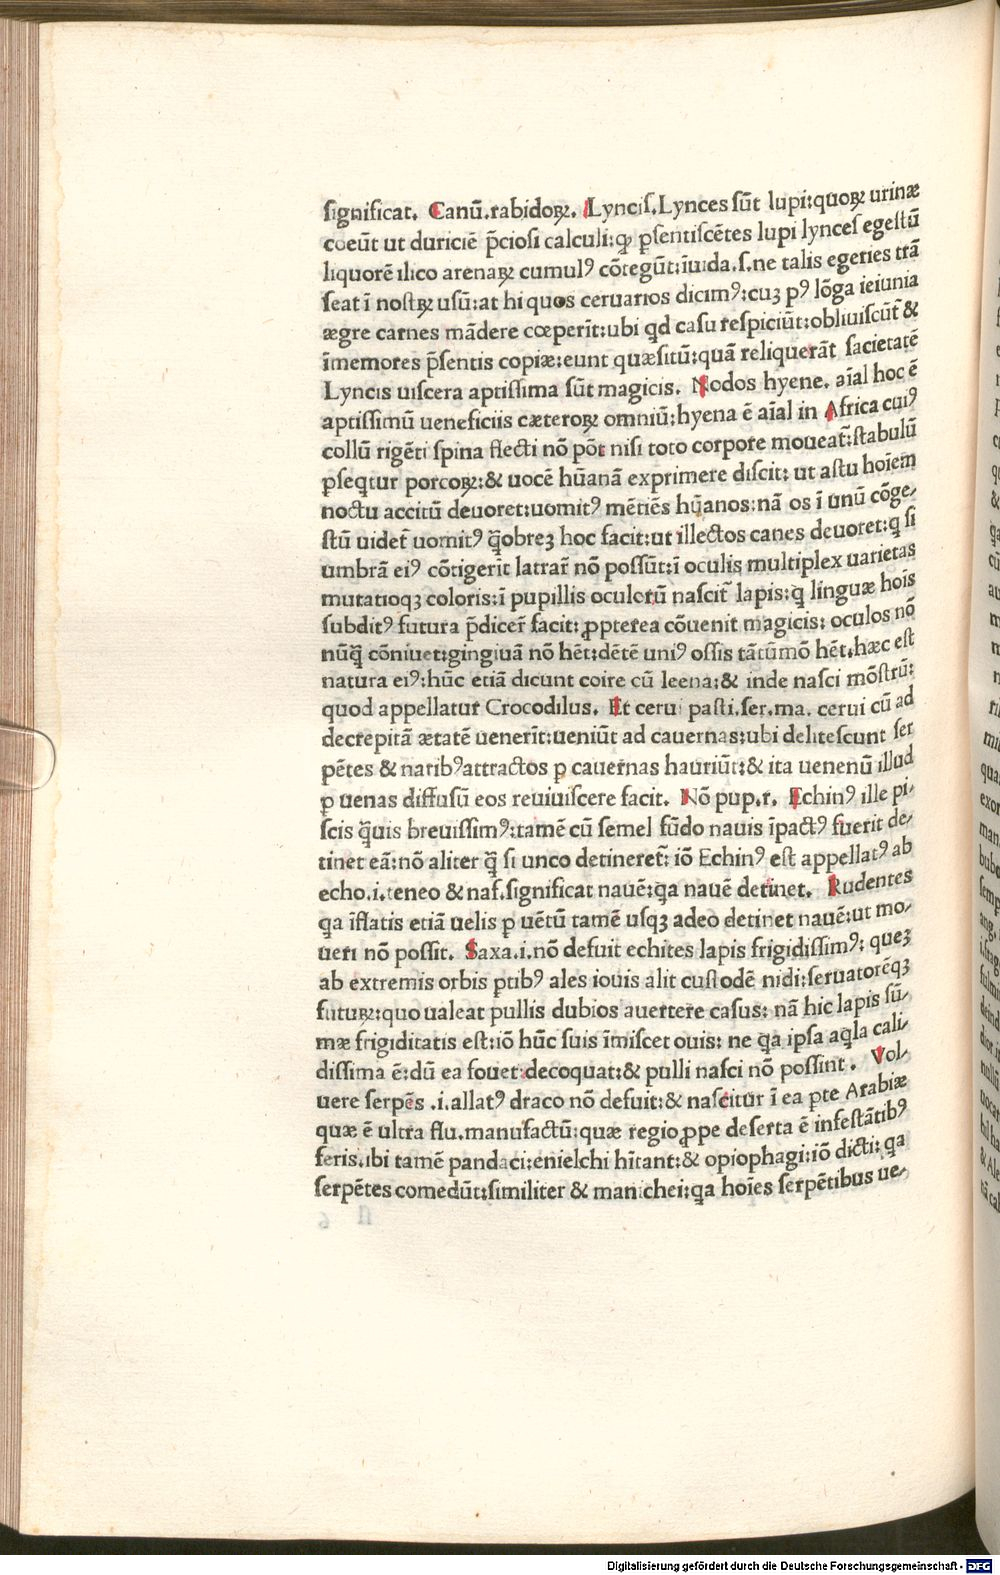 ſignificat. Canũ.rabidoꝝ. Lynciſ.Lynces ſũt lupi:quoꝝ urinæ
coeũt ut duriciẽ p̃cioſi calculi:ꝙ p̱ſentiſcẽtes lupi lynceſ egeſtũ
liquorẽ ilico arenaꝝ cumulꝰ cõtegũt:ĩuida.ſ.ne talis egeries trã
ſeat ĩ noſtꝝ uſũ:at hi quos ceruarios dicimꝰ:cuꝫ pꝰ lõga ieiunia
ægre carnes mãdere cœperĩt:ubi qd caſu reſpiciũt:obliuiſcũt̃ &
ĩmemores p̃ſentis copiæ:eunt quæſitũ:quã reliquerãt ſacietatẽ
Lyncis uiſcera aptiſſima ſũt magicis. Nodos hyene. aĩal hoc ẽ
aptiſſimũ ueneficiis cæteroꝝ omniũ:hyena ẽ aĩal in Africa cuiꝰ
collũ rigẽti ſpina flecti nõ põt niſi toto corpore moueat̃:ſtabulũ
ꝑſeqtur porcoꝝ:& uocẽ hũanã exprimere diſcit: ut aſtu hoĩem
noctu accitũ deuoret:uomitꝰ mẽtiẽs hũanos:nã os ĩ unũ cõge⸗
ſtũ uidet̃ uomitꝰ q̃obreꝫ hoc facit:ut illectos canes deuoret:q̱ ſi
umbrã eiꝰ cõtigerit latrar̃ nõ poſſũt:ĩ oculis multiplex uarietas
mutatioqꝫ coloris:ĩ pupillis oculorũ naſcit̃ lapis:q̱ linguæ hoĩs
ſubditꝰ futura p̃dicer̃ facit: ꝓpterea cõuenit magicis: oculos nõ
nũq̃ cõniuet:gingiuã nõ hẽt:dẽtẽ uniꝰ oſſis tãtũmõ hẽt:hæc eſt
natura eiꝰ:hũc etiã dicunt coire cũ leena:& inde naſci mõſtrũ:
quod appellatur Crocodilus. Et cerui paſti.ſer.ma. cerui cũ ad
decrepitã ætatẽ uenerĩt:ueniũt ad cauernas:ubi deliteſcunt ſer
pẽtes & naribꝰattractos ꝑ cauernas hauriũt:& ita uenenũ illud
ꝑ uenas diffuſũ eos reuiuiſcere facit. Nõ pup.r. Echinꝰ ille pi⸗
ſcis q̃uis breuiſſimꝰ:tamẽ cũ ſemel fũdo nauis ĩpactꝰ fuerit de⸗
tinet eã:nõ aliter q̃ ſi unco detineret̃: iõ Echinꝰ eſt appellatꝰ ab
echo.i.teneo & naſ.ſignificat nauẽ:q̱a nauẽ detinet. Rudentes
q̱a ĩflatis etiã uelis ꝑ uẽtũ tamẽ uſqꝫ adeo detinet nauẽ:ut mo⸗
ueri nõ poſſit. Saxa.i.nõ defuit echites lapis frigidiſſimꝰ: queꝫ
ab extremis orbis ꝑtibꝰ ales iouis alit cuſtodẽ nidi:ſeruatorẽqꝫ
futuꝝ:quo ualeat pullis dubios auertere caſus: nã hic lapis ſũ⸗
mæ frigiditatis eſt:iõ hũc ſuis ĩmiſcet ouis: ne q̱a ipſa aq̱la cali⸗
diſſima ẽ:dũ ea fouet:decoquat:& pulli naſci nõ poſſint. Vol⸗
uere ſerpẽs .i.allatꝰ draco nõ defuit:& naſcitur ĩ ea ꝑte Arabiæ
quæ ẽ ultra flu.manufactũ:quæ regio ꝓpe deſerta ẽ infeſtãtibꝰ
feris.ibi tamẽ pandaci:enielchi hĩtant:& opiophagi:iõ dicti: q̱a
ſerpẽtes comedũt:ſimiliter & manichei:q̱a hoĩes ſerpẽtibus ue⸗
Digitalisierung gefördert durch die Deutsche Forschungsgemeinschaft - DFG